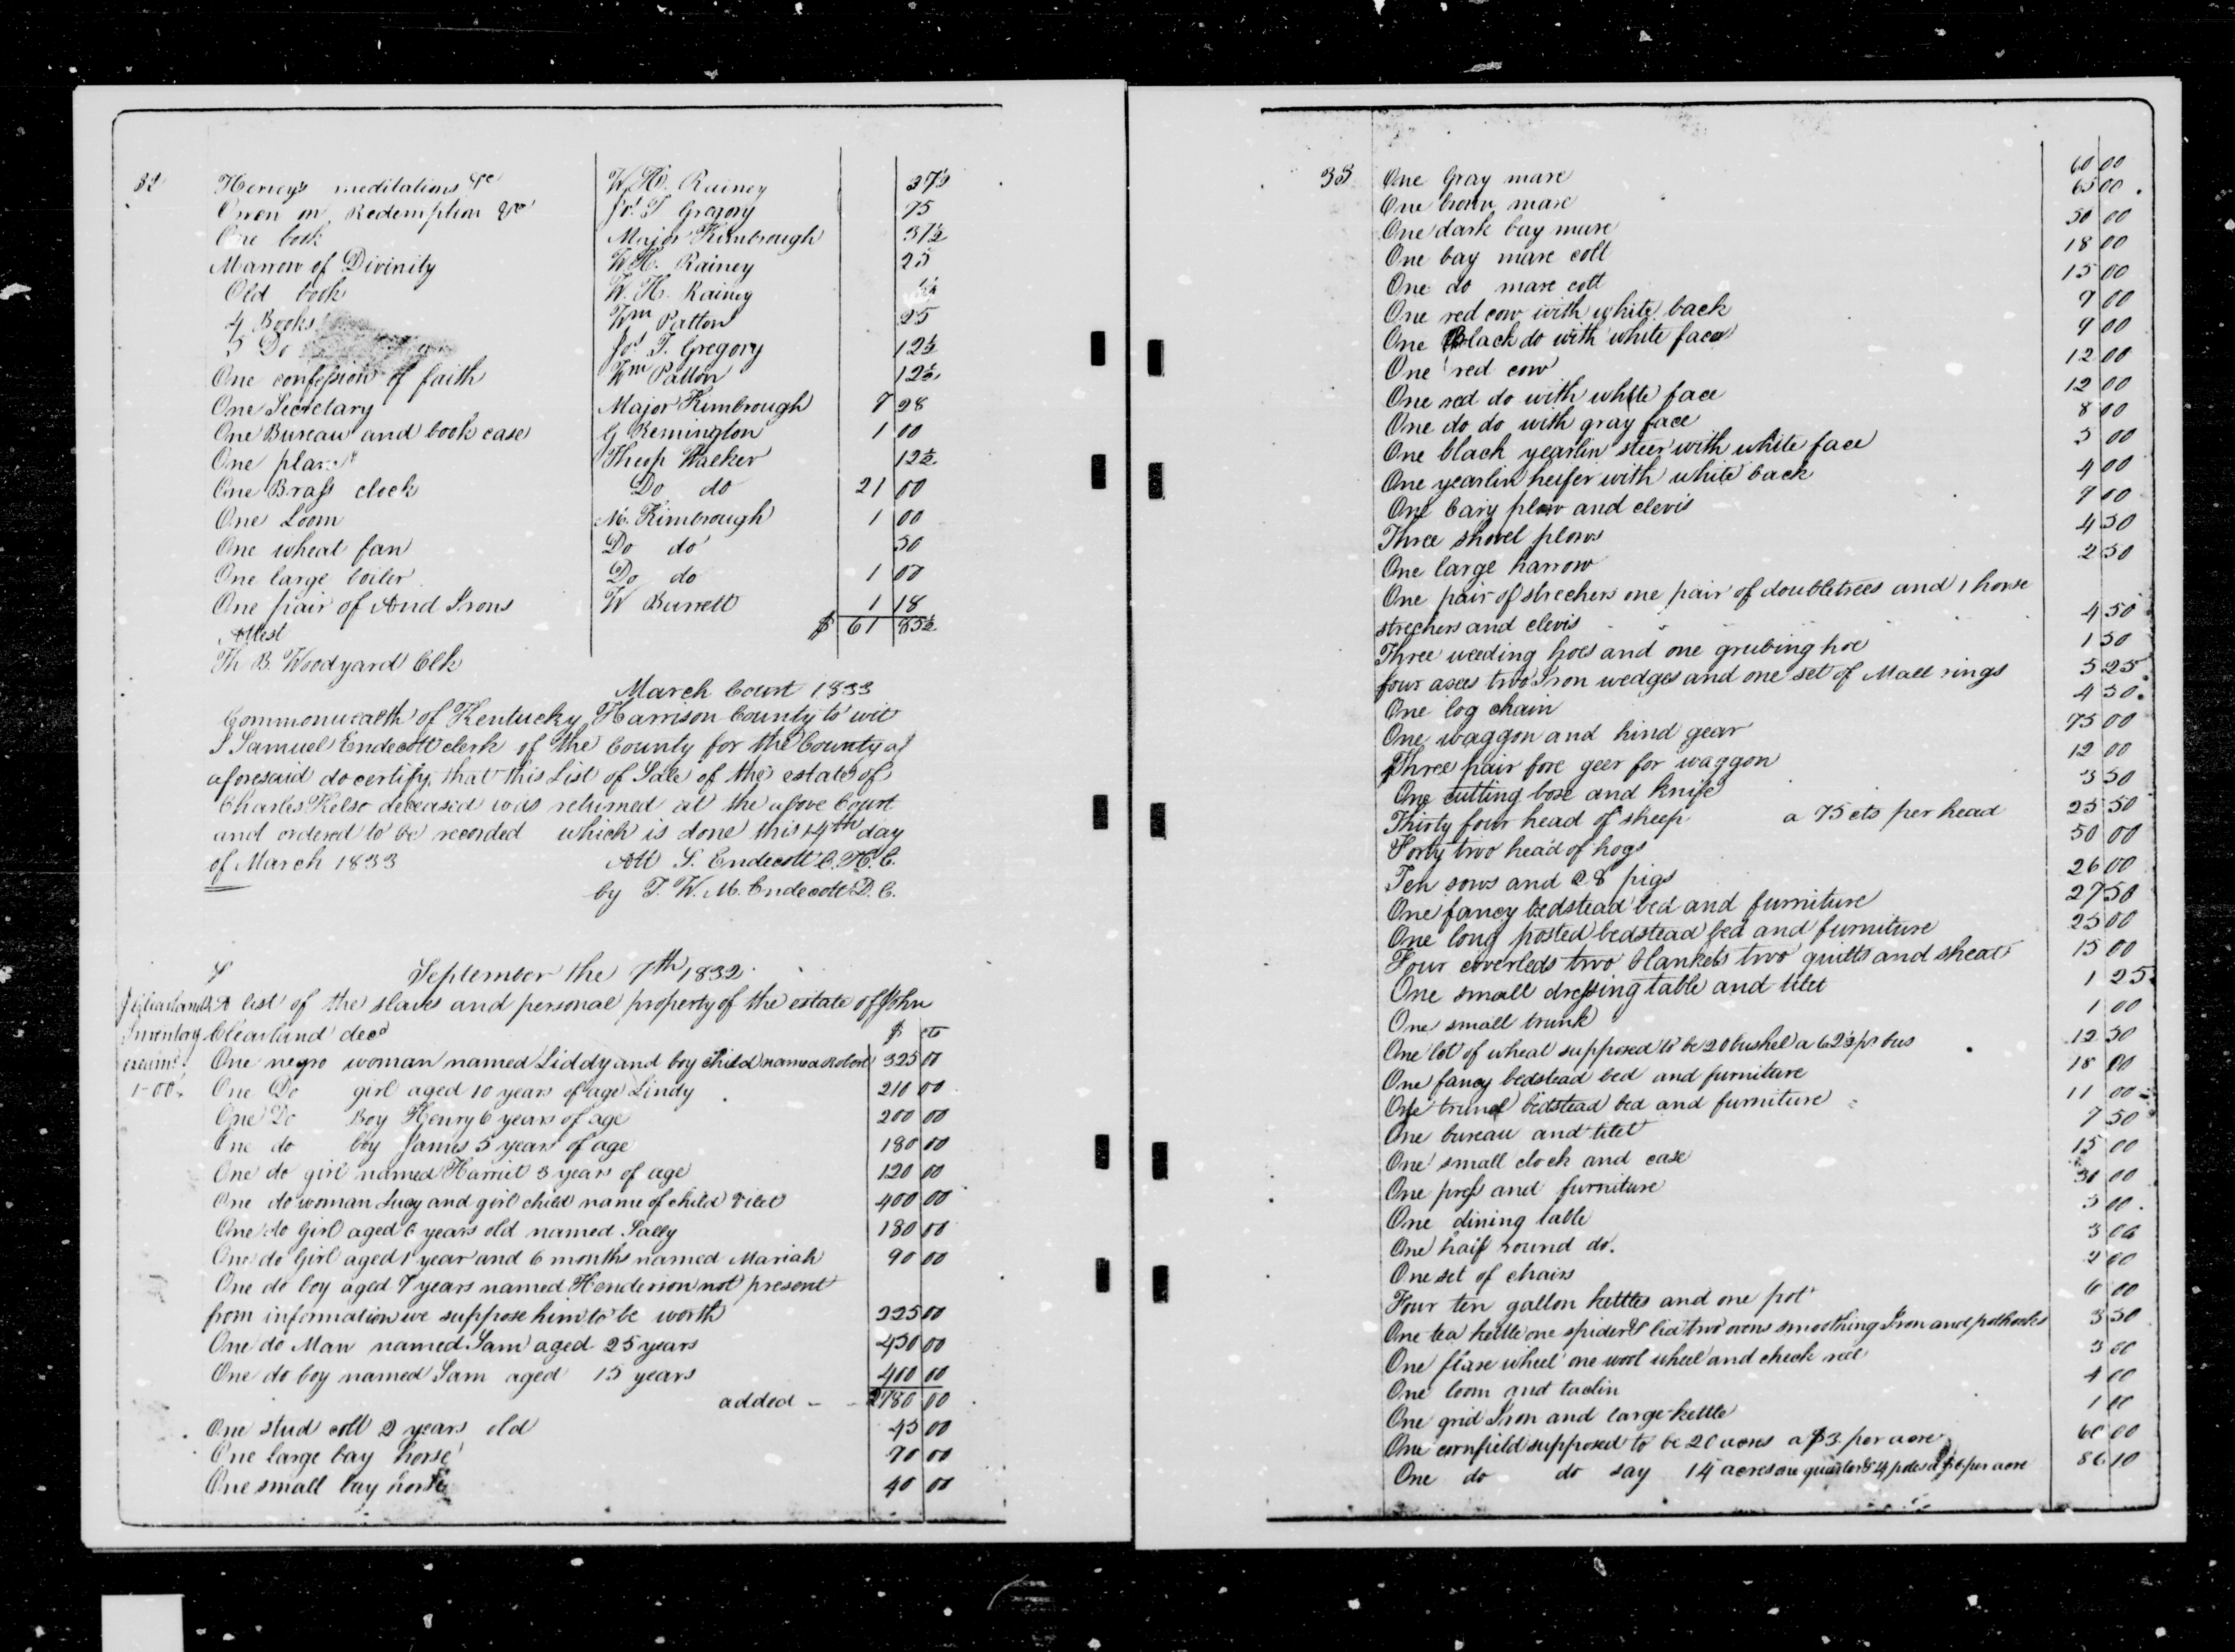 32
Hervey's meditations &c W. H. Rainey 37½
Owen on Redemption &c Jos T Gregory 75
One book Major Kimbrough 37½
Marrow of Divinity W H. Rainey 25
Old book W. H. Rainey
4 Books Wm Patton 25
5 Do Jos T. Gregory 12½
One confession of faith Wm Patton 12½
One Secretary Major Kimbrough 7 28
One Bureau and book case G Remington 1 00
One Theop Walker 12½
One Brass clock Do do 21 00
One Loom M. Kimbrough 1 00
One wheat fan Do do 50
One large boiler Do do 1 07
One pair of And Irons W Burrett 1 18
Attest $ 61 85½
Th B. Woodyard Clk
March Court 1833
Commonwealth of Kentucky Harrison County to wit
I Samuel Endecott clerk of the County for the County af
aforesaid do certify that this List of Sale of the estate of
Charles Kelso deceased was returned at the above Court
and ordered to be recorded which is done this 14th day
of March 1833 Att S. Endecott C. H. C.
by T. W. M. Endecott D. C.
September the 7th 1832
A list of the slaves and personal property of the estate of John
Inventory Clearland decd $ cts
One negro woman named Liddy and boy child named Robert 325 00
1-00 One Do girl aged 10 years of age Lindy 210 00
One Do Boy Henry 6 years of age 200 00
One do boy James 5 years of age 180 00
One do girl named Harriet 3 years of age 120 00
One do woman Lucy and girl child name of child Vilet 400 00
One do Girl aged 6 years old named Sally 180 00
One do Girl aged 1 year and 6 months named Mariah 90 00
One do boy aged 7 years named Henderson not present
from information we suppose him to be worth 225 00
One do Man named Sam aged 25 years 450 00
One do boy named Sam aged 15 years 400 00
added - - 2780 00
One stud colt 2 years old 45 00
One large bay horse 70 00
One small bay horse 40 00
33
One Gray mare 60 00
One brown mare 65 00
One dark bay mare 50 00
One bay mare colt 18 00
One do mare colt 15 00
One red cow with white back 9 00
One Black do with white face 9 00
One red cow 12 00
One red do with white face 12 00
One do do with gray face 8 00
One black yearlin steer with white face 5 00
One yearlin heifer with white back 4 00
One Cary plow and clevis 7 00
Three shovel plows 4 50
One large harrow 2 50
One pair of strechers one pair of doubletrees and 1 horse
strechers and clevis 4 50
Three weeding hoes and one grubing hoe 1 50
four axes two Iron wedges and one set of Mall rings 5 25
One log chain 4 50
One waggon and hind gear 75 00
Three pair fore geer for waggon 12 00
One cutting box and knife 3 50
Thirty four head of sheep a 75 cts per head 25 50
Forty two head of hogs 50 00
Ten sows and 28 pigs 26 00
One fancy bedstead bed and furniture 27 50
One long posted bedstead bed and furniture 25 00
Four coverleds two blankets two quilts and sheat 15 00
One small dressing table and tilet 1 25
One small trunk 1 00
One lot of wheat supposed to be 20 bushel a 62½ pr bus 12 50
One fancy bedstead bed and furniture 18 00
One trunel bedstead bed and furniture 11 00
One bureau and tilet 7 50
One small clock and case 15 00
One press and furniture 30 00
One dining table 5 00
One half round do. 3 00
One set of chairs 2 00
Four ten gallon kettles and one pot 6 00
One tea kettle one spider & lid two ovens smoothing Iron and pothooks 3 50
One flax wheel one wool wheel and check reel 3 00
One loom and taclin 4 00
One grid Iron and large kettle 1 00
One cornfield supposed to be 20 acres a $3 per acre 60 00
One do do say 14 acres one quarter & 4 poles a $6 per acre 86 10